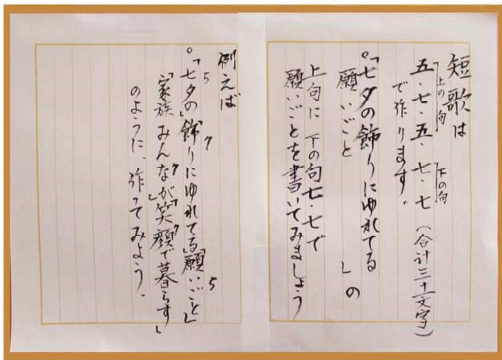 短歌は
上の句 下の句
五・七・五・七・七(合計三十一文字)
で作ります。
。「七夕の飾りにゆれてる
願いごと 」の
上句に下の句七・七で
願いごとを書いてみましょう
例えば
5 7 5
。「七夕の」飾りにゆれてる」願いごと」
7 7
「家族みんなが」笑顔で暮らす」
のように、作ってみよう。